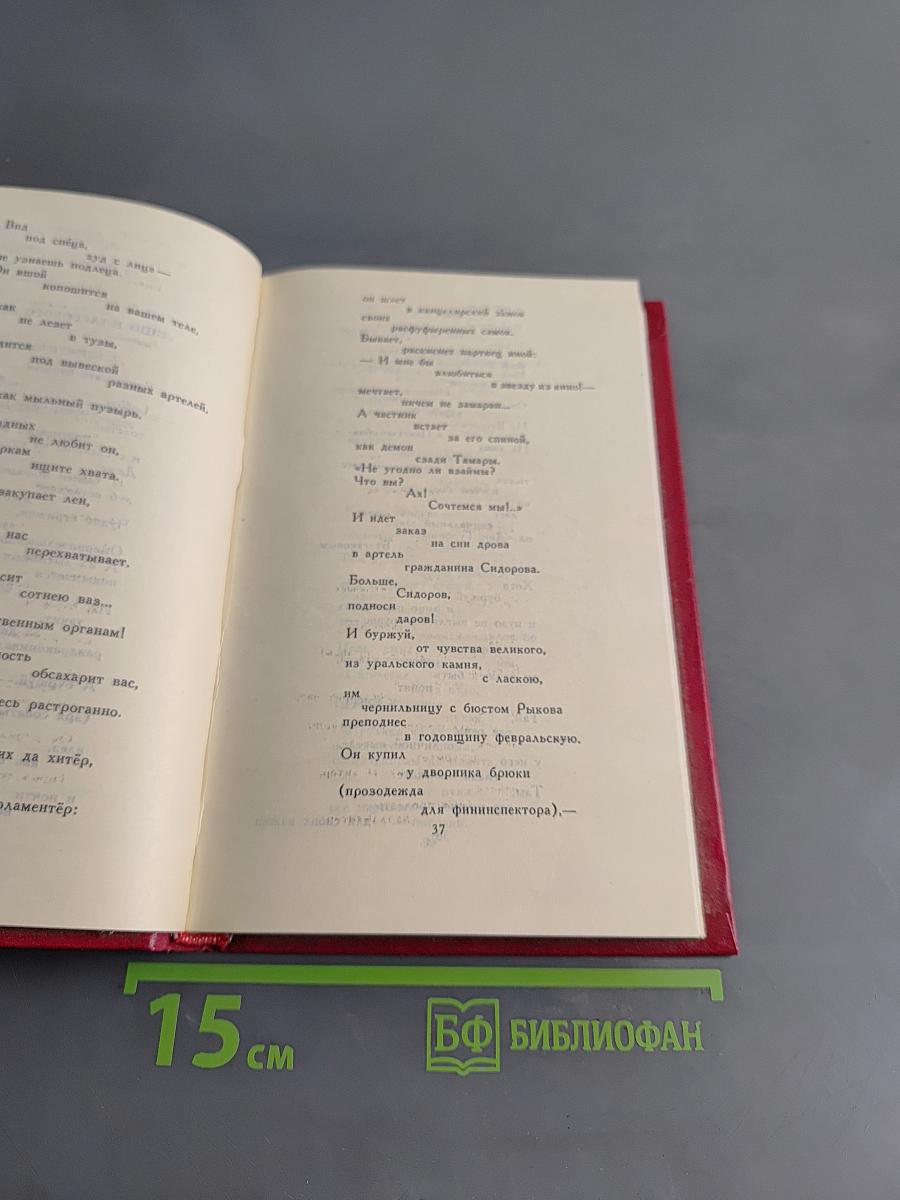 Вид
под спе́ца,
зуд с лица —
не узнаешь подлеца.
Он вшой
копошится
на вашем теле,
как
не лезет
в тузы,
дится
под вывеской
разных артелей,
как мыльный пузырь.
дных
не любит он,
ркам
ищите хвата.
закупает лен,
нас
перехватывает.
сит
сотнею ваз...
твенным органам!
ность
обсахарит вас,
есь растроганно.
их да хитёр,
рламентёр:
он шлет
в канцелярский
своих
расфуфыренных самок.
Бывает,
раскиснет партиец иной:
— И мне бы
влюбиться
в звезду из кино!—
мечтает,
ничем не замаран...
А частник
встает
за его спиной,
как демон
сзади Тамары.
«Не угодно ли взаймы?
Что вы?
Ах!
Сочтемся мы!..»
И идет
заказ
на сии дрова
в артель
гражданина Сидорова.
Больше,
Сидоров,
подноси
даров!
И буржуй,
от чувства великого,
из уральского камня,
с ласкою,
им
чернильницу с бюстом Рыкова
преподнес
в годовщину февральскую.
Он купил
у дворника брюки
(прозодежда
для фининспектора),—
37
15 см
БФ БИБЛИОФАН